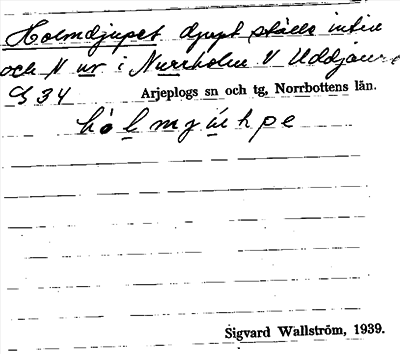 Holmdjupet djupt ställe intill
och N ur i Norrholm V Uddjaure
S 34 Arjeplogs sn och tg, Norrbottens län.
Sigvard Wallström, 1939.